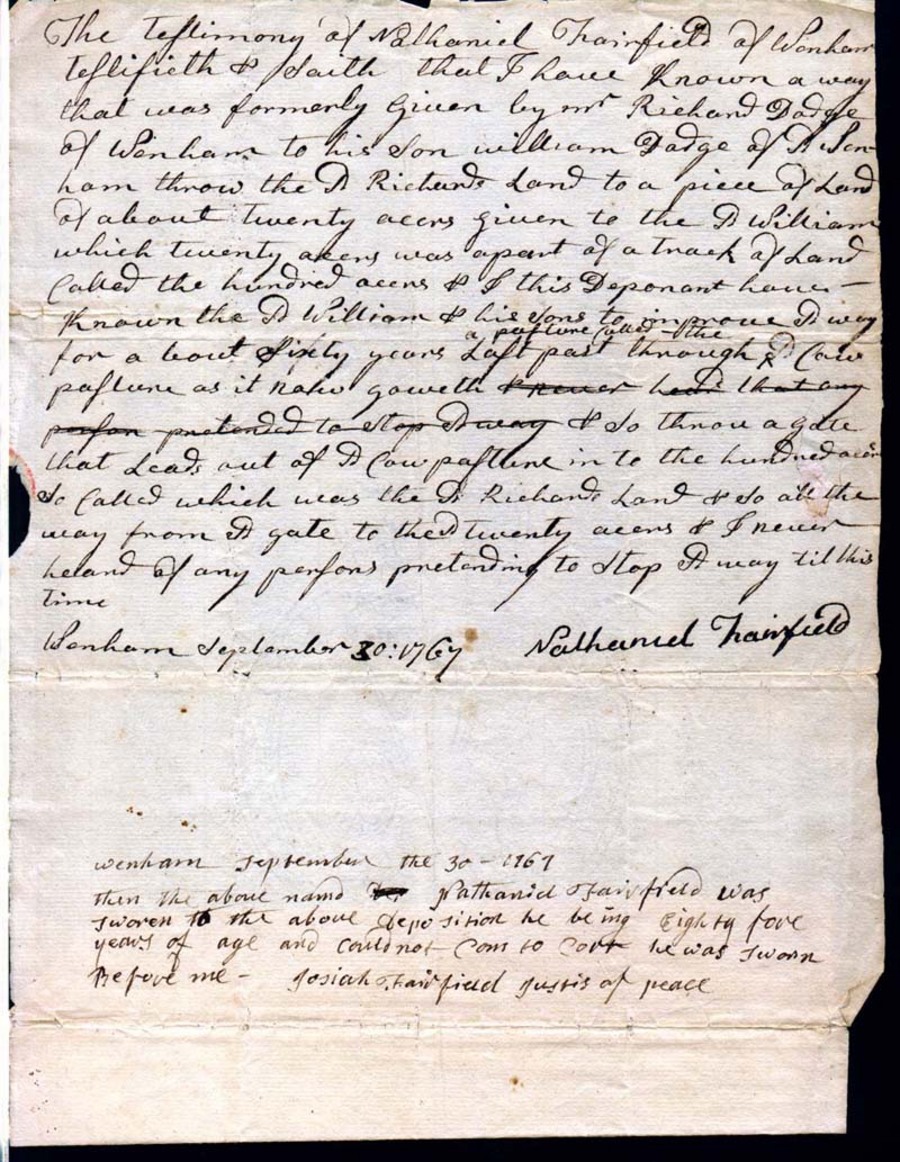 The Testimony of Nathaniel Fairfield of Wenham
testifieth & saith that I have Known a way
that was formerly Given by mr Richard Dodge
of Wenham to his Son william Dodge of sd Wen-
ham throw the sd Richards Land to a piece of Land
of about twenty acers given to the sd William
which twenty acers was apart of a track of Land
Called the hundred acers & I this Deponant have -
Known the sd William & his sons to improve sd way
a pasture called the
for a bout sixty years Last past through sd Cow
pasture as it now goweth & never heard that any
person pretended to stop sd way & so throu a gate
that Leads out of sd Cow pasture in to the hundred acers
So Called which was the sd Richards Land & so all the
way from sd gate to the sd twenty acers & I never
heard of any persons pretending to stop sd way til this
time
Wenham September 30: 1767 Nathaniel Fairfield
wenham september the 30 - 1767
then the above namd Nathaniel Fairfield was
sworen to the above Deposition he being Eighty fore
years of age and could not Com to Cort he was sworn
Before me - Josiah Fairfield Justis of peace